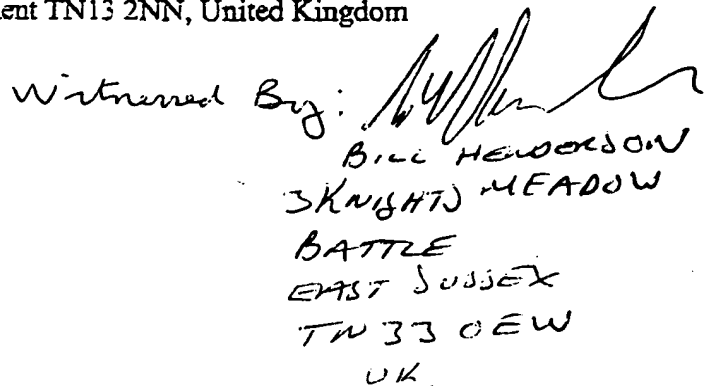 ent TN13 2NN, United Kingdom
Witnessed By:
BILL HENDERSON
3 KNIGHTS MEADOW
BATTLE
EAST SUSSEX
TN33 0EW
UK